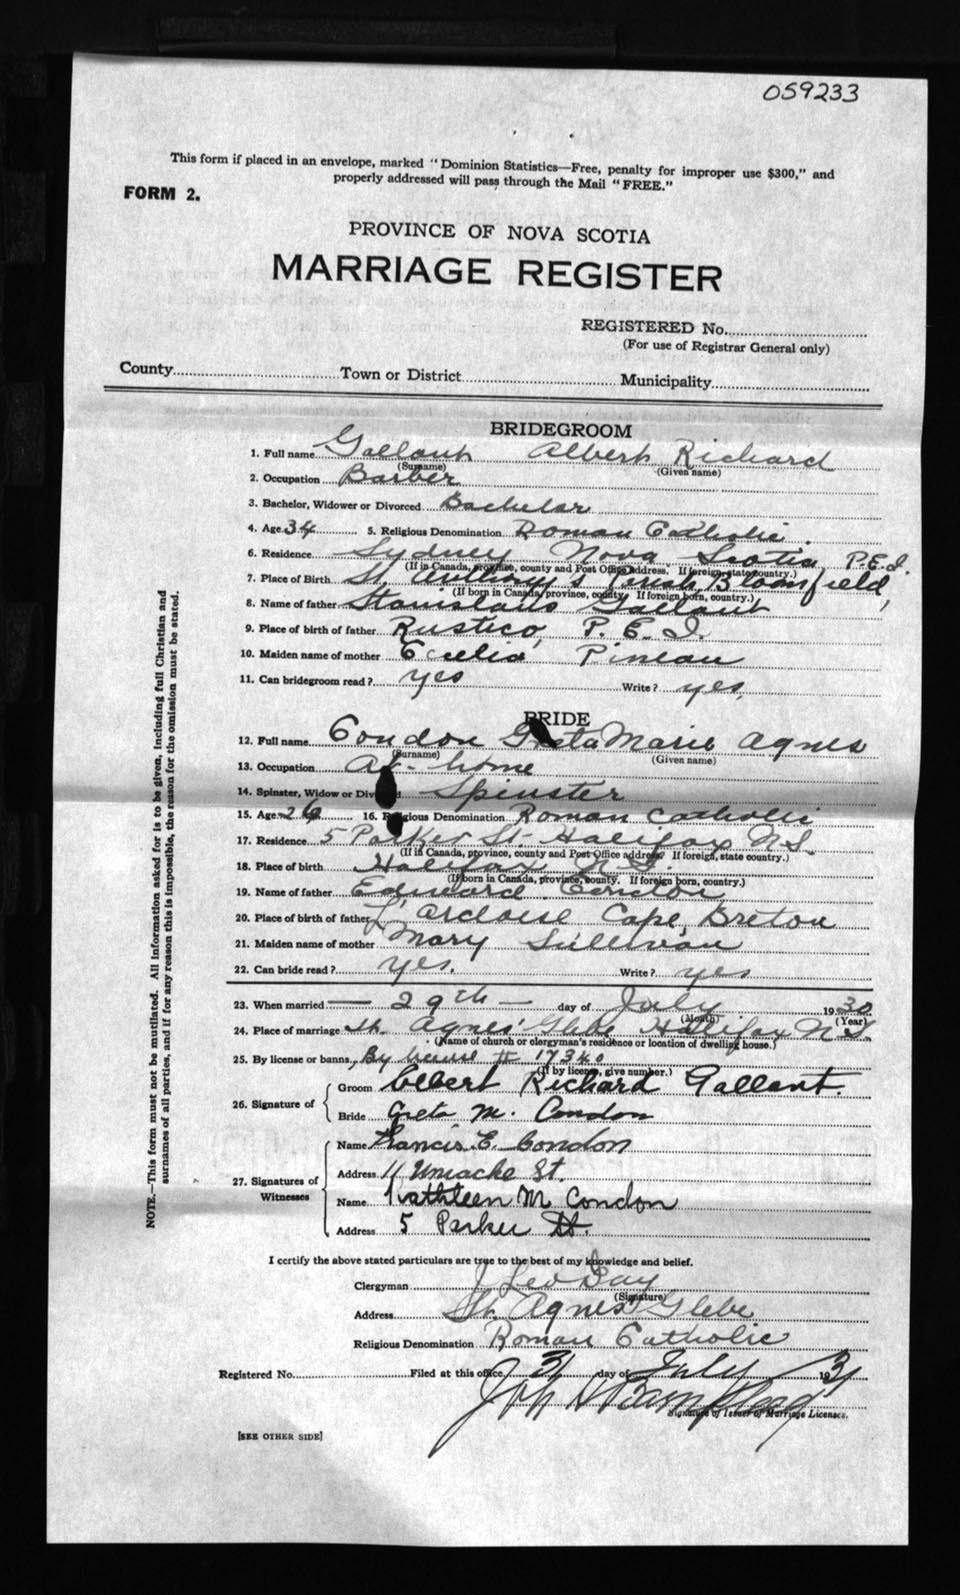 059233
This form if placed in an envelope, marked "Dominion Statistics—Free, penalty for improper use $300," and
properly addressed will pass through the Mail "FREE."
FORM 2.
PROVINCE OF NOVA SCOTIA
MARRIAGE REGISTER
REGISTERED No.
(For use of Registrar General only)
County Town or District Municipality
BRIDEGROOM
1. Full name Gallant Albert Richard
(Surname) (Given name)
2. Occupation Barber
3. Bachelor, Widower or Divorced Bachelor
4. Age 34 5. Religious Denomination Roman Catholic.
6. Residence Sydney Nova Scotia P.E.I.
(If in Canada, province, county and Post Office address. If foreign, state country.)
7. Place of Birth St. Anthony's Parish, Bloomfield,
(If born in Canada, province, county. If foreign born, country.)
8. Name of father Stanislaus Gallant
9. Place of birth of father Rustico, P. E. I.
10. Maiden name of mother Cecelia Pineau
11. Can bridegroom read? yes Write? yes.
BRIDE
12. Full name Condon Greta Marie Agnes
(Surname) (Given name)
13. Occupation At-home
14. Spinster, Widow or Div d. Spinster
15. Age 26 16. Religious Denomination Roman Catholic
17. Residence 5 Parker St. Halifax N.S.
(If in Canada, province, county and Post Office address. If foreign, state country.)
18. Place of birth Halifax N.S.
(If born in Canada, province, county. If foreign born, country.)
19. Name of father Edward Condon
20. Place of birth of father L'ardoise Cape Breton
21. Maiden name of mother Mary Sullivan
22. Can bride read? yes. Write? yes
23. When married — 29th — day of July 1930
(Month) (Year)
24. Place of marriage St. Agnes' Glebe Halifax N.S.
(Name of church or clergyman's residence or location of dwelling house.)
25. By license or banns, By license # 17340
(If by license, give number.)
26. Signature of Groom Albert Richard Gallant.
Bride Greta M. Condon
27. Signatures of Witnesses
Name Francis E. Condon
Address 11 Uniacke St.
Name Kathleen M Condon
Address 5 Parker St.
I certify the above stated particulars are true to the best of my knowledge and belief.
Clergyman J. Leo
(Signature)
Address St. Agnes' Glebe
Religious Denomination Roman Catholic
Registered No. Filed at this office 31 day of July 1931
Signature of Issuer of Marriage Licenses.
[SEE OTHER SIDE]
NOTE.—This form must not be mutilated. All information asked for is to be given, including full Christian and
surnames of all parties, and if for any reason this is impossible, the reason for the omission must be stated.